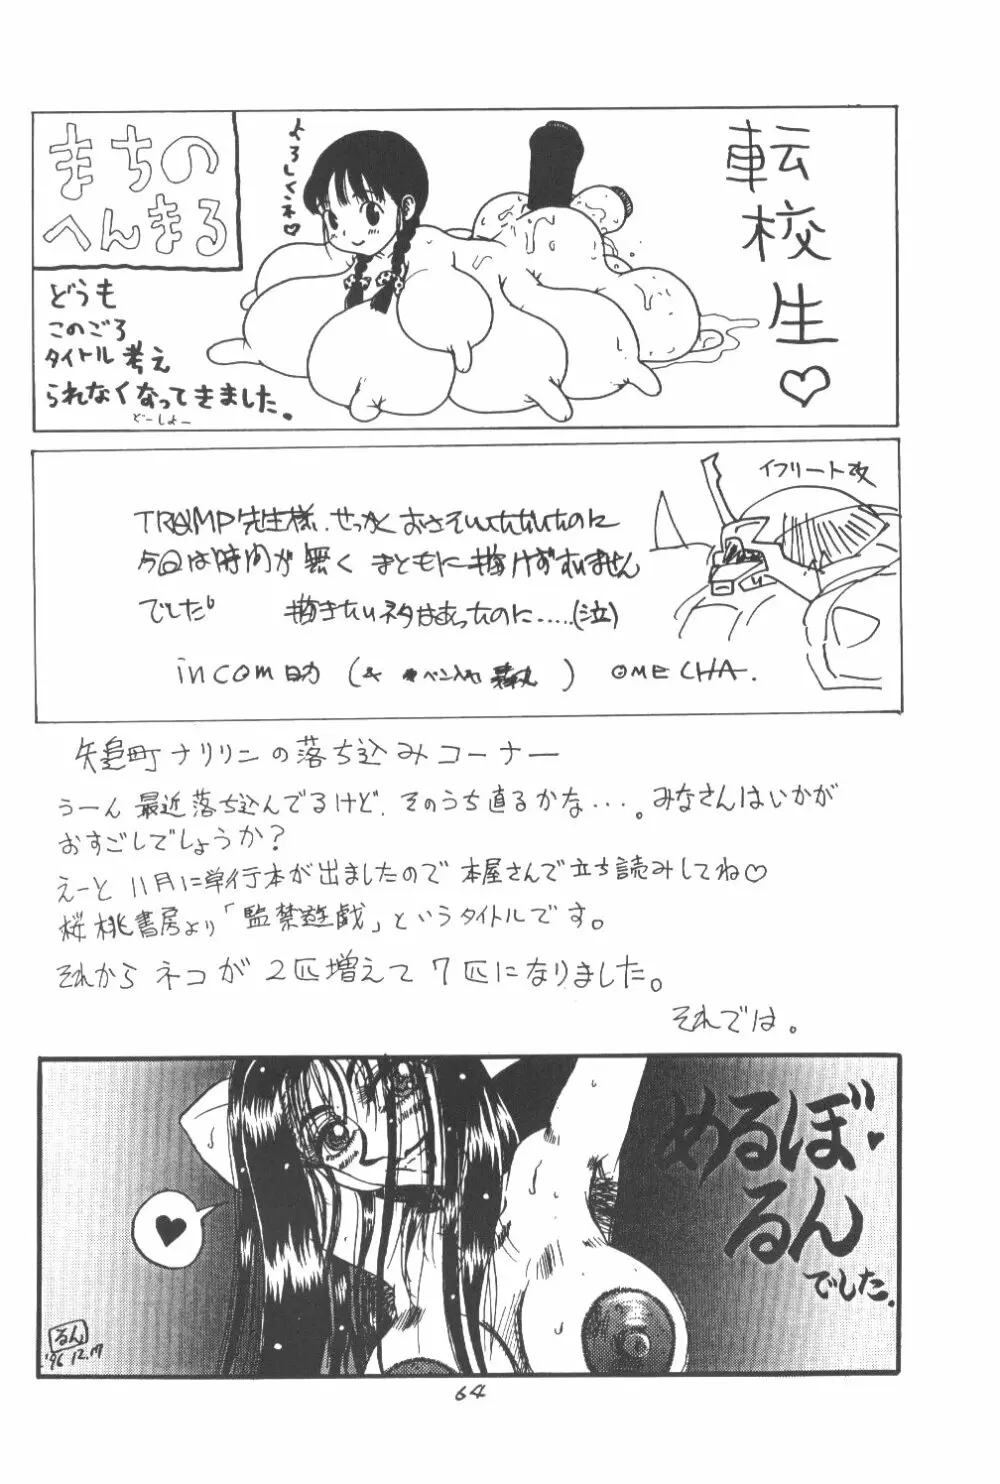 まちの
へんまる
よろしくネ♡
転校生♡
どうも
このごろ
タイトル考え
られなくなってきました。
どーしよー
イフリート改
TRAMP先生様、せっかくおさそいいただいたのに
今回は時間が無くまともに描けずすいません
でした。 描きたいネタはあったのに.....(泣)
incom
OMECHA.
ナリリンの落ち込みコーナー
うーん 最近落ち込んでるけど、そのうち直るかな...。みなさんはいかが
おすごしでしょうか?
えーと 11月に単行本が出ましたので 本屋さんで立ち読みしてね♡
桜桃書房より「監禁遊戯」というタイトルです。
それから ネコが 2匹増えて 7匹になりました。
それでは。
めるぼ♥
るん
でした.
るん
'96 12.17
64